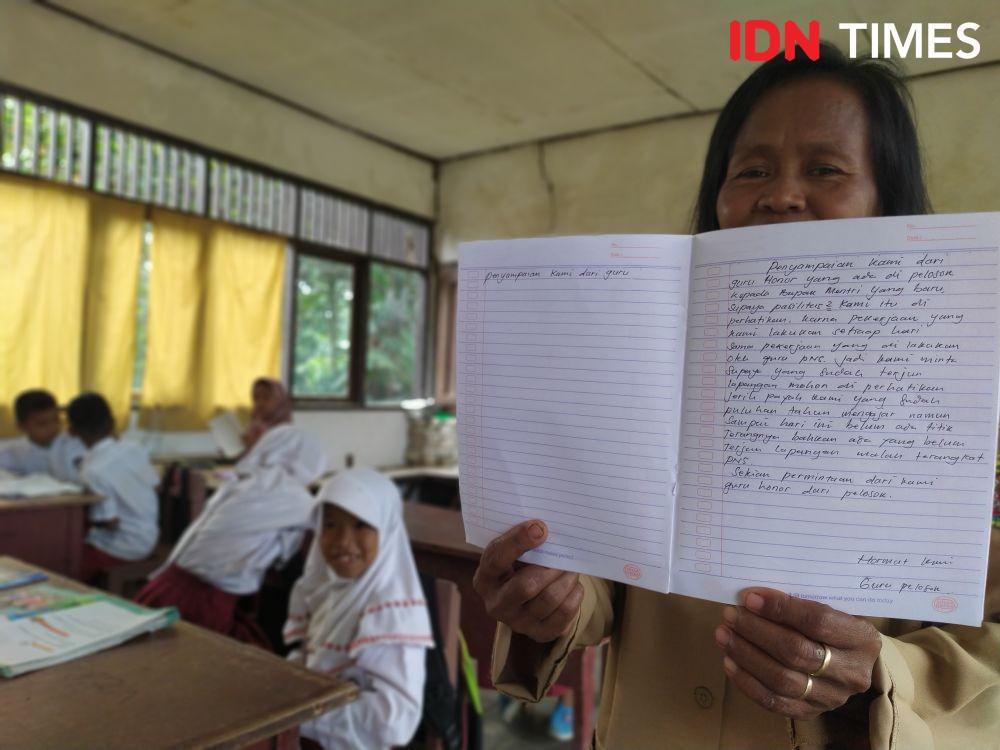 IDN TIMES
penyampaian kami dari guru
Penyampaian kami dari
guru Honor yang ada di pelosok
kepada Bapak Mentri yang baru.
Supaya pasilitas2 kami itu di
perhatikan. karna pekerjaan yang
kami lakukan setiaap hari
Sama pekerjaan yang di lakukan
oleh guru PNS. Jadi kami minta
Supaya yang sudah terjun
lapangan mohon di perhatikan
jerih payah kami yang sudah
puluhan tahun mengajar namun
Sampai hari ini belum ada titik
terangnya bahkan ada yang belum
terjun lapangan malah terangkat
PNS.
Sekian permintaan dari kami
guru honor dari pelosok.
Hormat kami
Guru pelosok.
tomorrow what you can do today